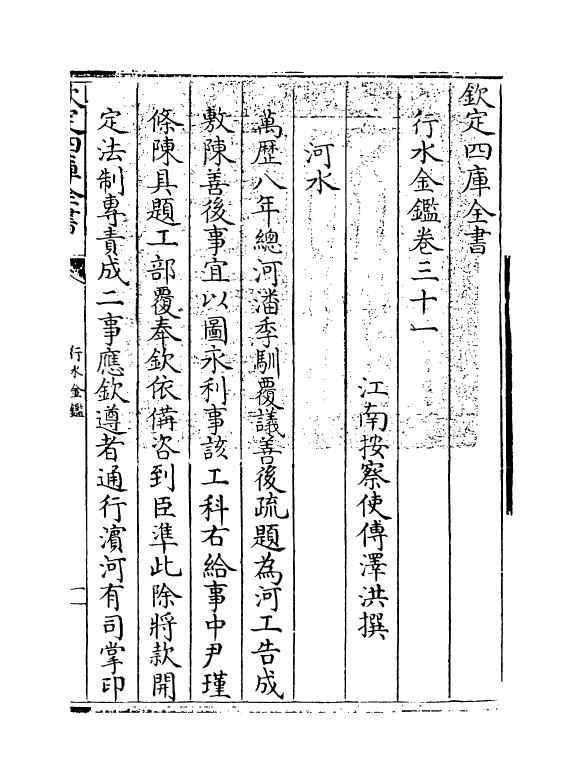 欽定四庫全書
行水金鑑卷三十一
江南按察使傅澤洪撰
河水
萬歴八年總河潘季馴覆議善後疏題為河工告成
敷陳善後事宜以圖永利事該工科右給事中尹瑾
條陳具題工部覆奉欽依備咨到臣準此除將款開
定法制專責成二事應欽遵者通行濱河有司掌印
欽定四庫全書
行水金鑑
一